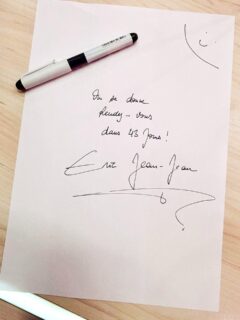 On se donne
Rendez-vous
dans 43 jours !
Eric Jean-Jean